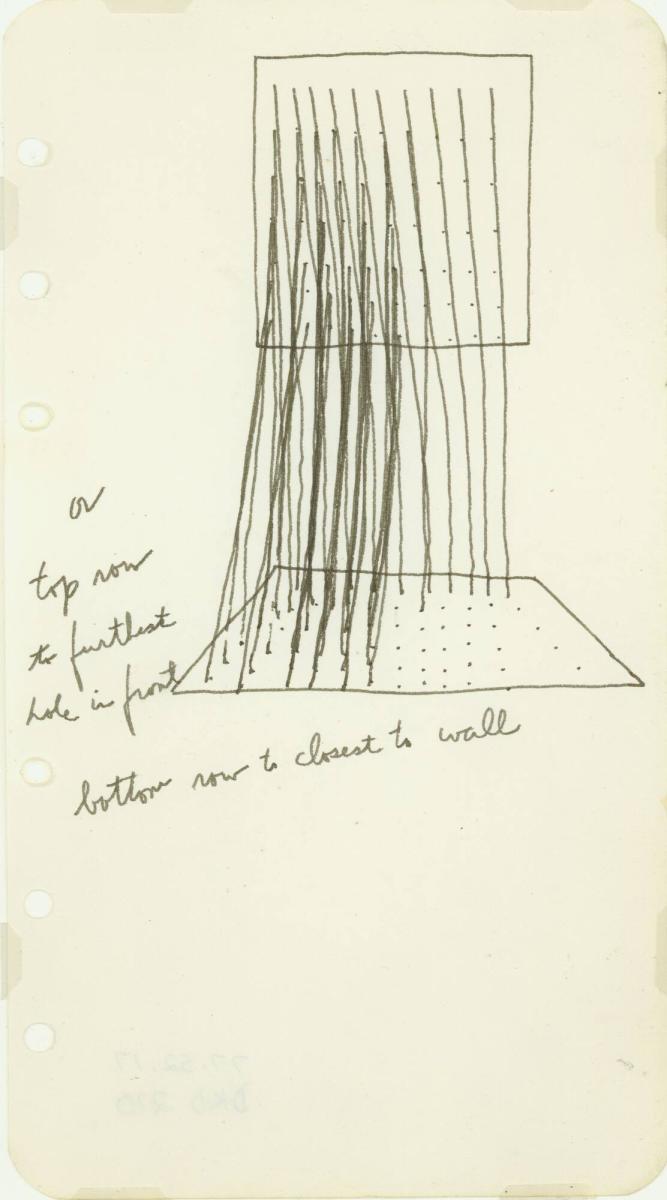 or
top row
to furthest
hole in front
bottom row to closest to wall